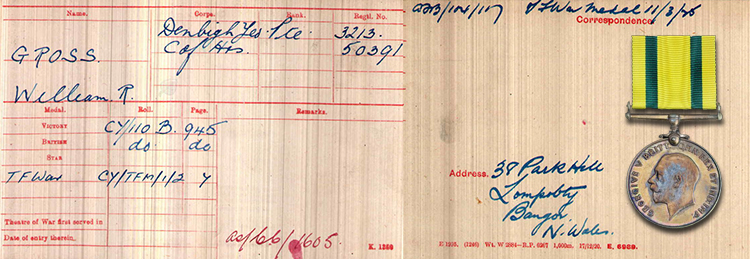 Name. Corps. Rank. Regtl. No.
GROSS. Denbigh Yeo. Pte 3213.
C of Hrs. 50391
William. R.
Medal. Roll. Page. Remarks.
VICTORY CY/110 B. 945
BRITISH do do
STAR
TFWar CY/TFM/1/2 4
Theatre of War first served in
Date of entry therein.
K. 1380
TFWar Medal 11/3/25
Correspondence
Address. 38 Park Hill
Bangor.
N. Wales.
E 1205. Wt. W 2884—R.P. 6267 1,000m. 17/12/20. E. 6989.